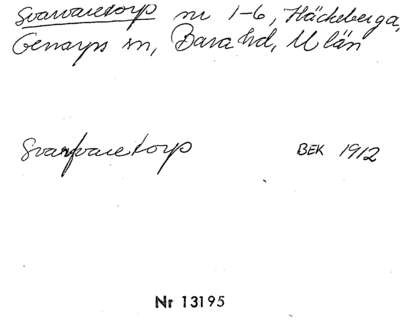 Svarvaretorp nr 1-6, Häckeberga,
Genarps sn, Bara hd, M län
Svarfvaretorp BEK 1912
Nr 13195